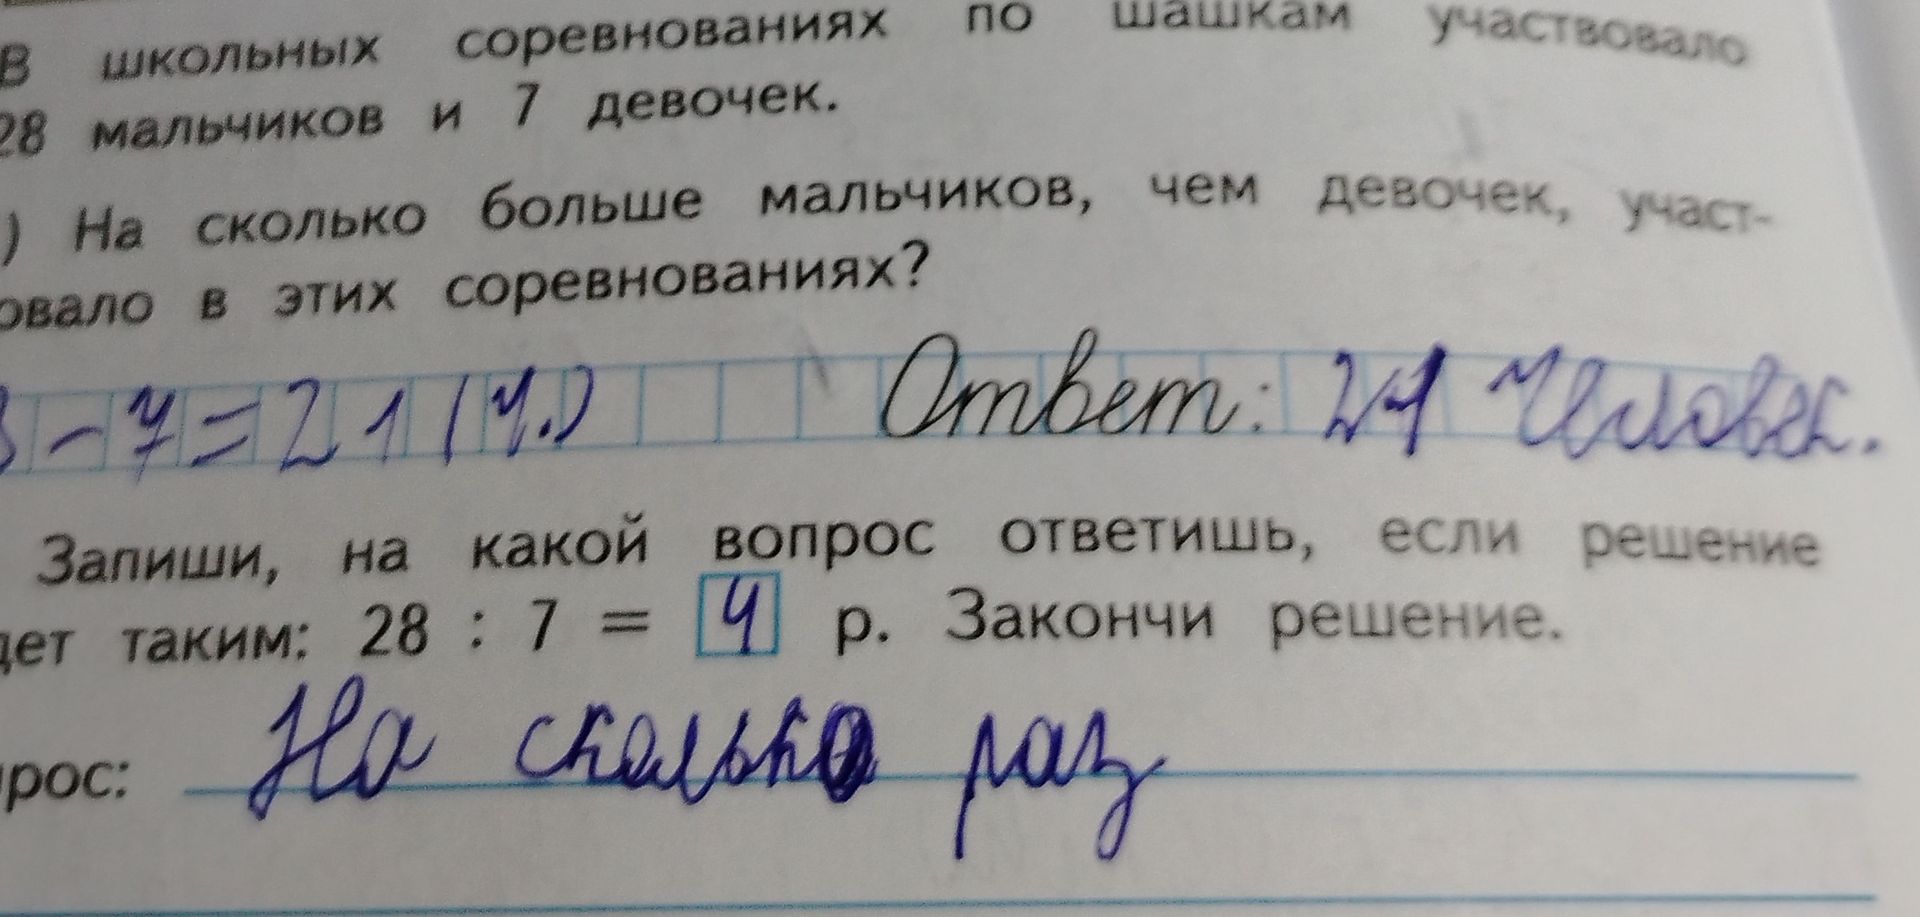 В школьных соревнованиях по шашкам участвовало
28 мальчиков и 7 девочек.
) На сколько больше мальчиков, чем девочек, участ-
овало в этих соревнованиях?
8 - 7 = 21 (ч.) Ответ: 21 человек.
Запиши, на какой вопрос ответишь, если решение
дет таким: 28 : 7 = 4 р. Закончи решение.
прос: На сколько раз